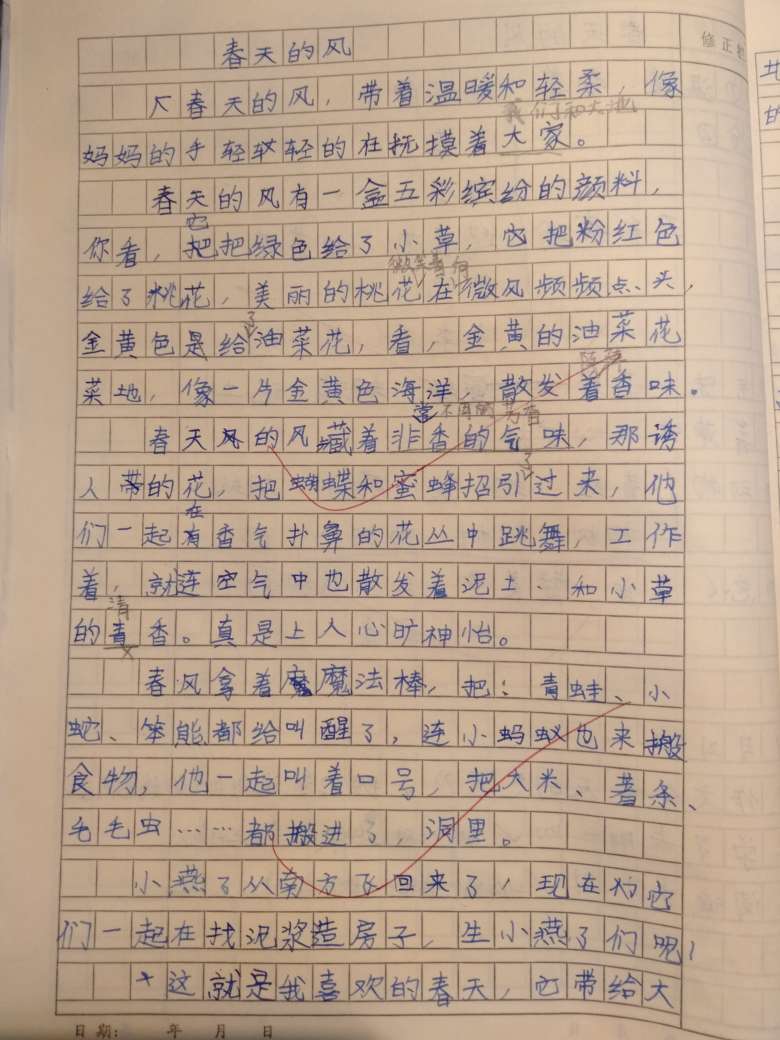 修正栏
春天的风
春天的风，带着温暖和轻柔，像
我们和大地
妈妈的手轻轻轻的在抚摸着大家。
春天的风有一盒五彩缤纷的颜料，
它
你看，把把绿色给了小草，它把粉红色
微笑着向
给了桃花，美丽的桃花在微风频频点头，
了
金黄色是给油菜花，看，金黄的油菜花
菜地，像一片金黄色海洋，散发着香味。
常
春天风的风藏着非香的气味，那诱
了
人带的花，把蝴蝶和蜜蜂招引过来，他
在
们一起有香气扑鼻的花丛中跳舞，工作
着，就连空气中也散发着泥土、和小草
清
的青香。真是上人心旷神怡。
春风拿着魔魔法棒，把：青蛙、小
蛇、笨能都给叫醒了，连小蚂蚁也来搬
食物，他一起叫着口号，把大米、薯条、
毛毛虫……都搬进了，洞里。
小燕了从南方飞回来了，现在它
们一起在找泥浆造房子，生小燕了们呢！
这就是我喜欢的春天，它带给大
日期： 年 月 日